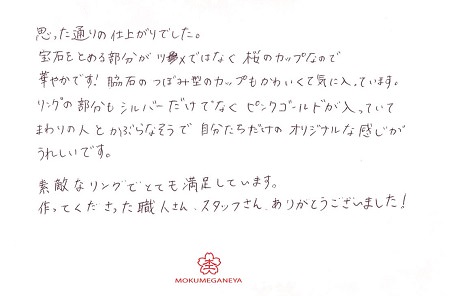 思った通りの仕上がりでした。
宝石をとめる部分がツメではなく桜のカップなので
華やかです！脇石のつぼみ型のカップもかわいくて気に入っています。
リングの部分もシルバーだけでなくピンクゴールドが入っていて
まわりの人とかぶらなそうで自分たちだけのオリジナルな感じが
うれしいです。
素敵なリングでとても満足しています。
作ってくださった職人さん、スタッフさん、ありがとうございました！
MOKUMEGANEYA